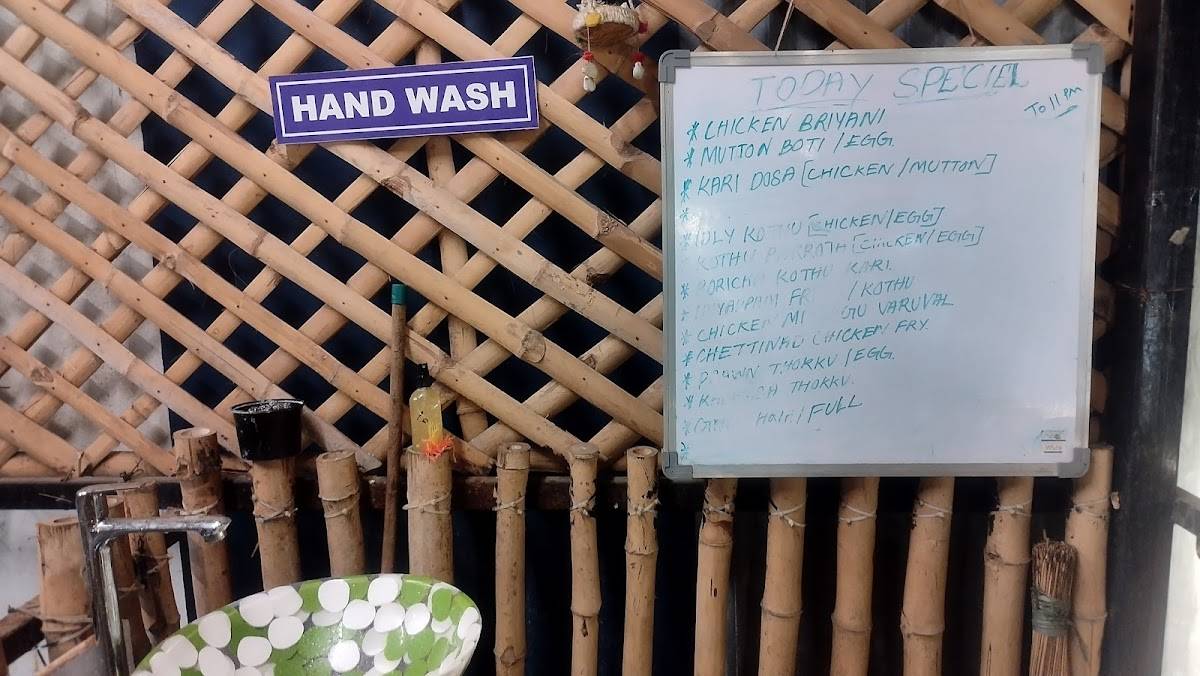 HAND WASH
TODAY SPECIEL
To 11 PM
* CHICKEN BRIYANI
* MUTTON BOTI / EGG.
* KARI DOSA [CHICKEN / MUTTON]
*
IDLY KOTHU [CHICKEN/EGG]
KOTHU [CHICKEN/EGG]
* KOTHU KARI.
* / KOTHU
* CHICKEN VARUVAL
* CHETTINAD CHICKEN FRY.
* THOKKU / EGG.
* THOKKU.
* Half / FULL
*